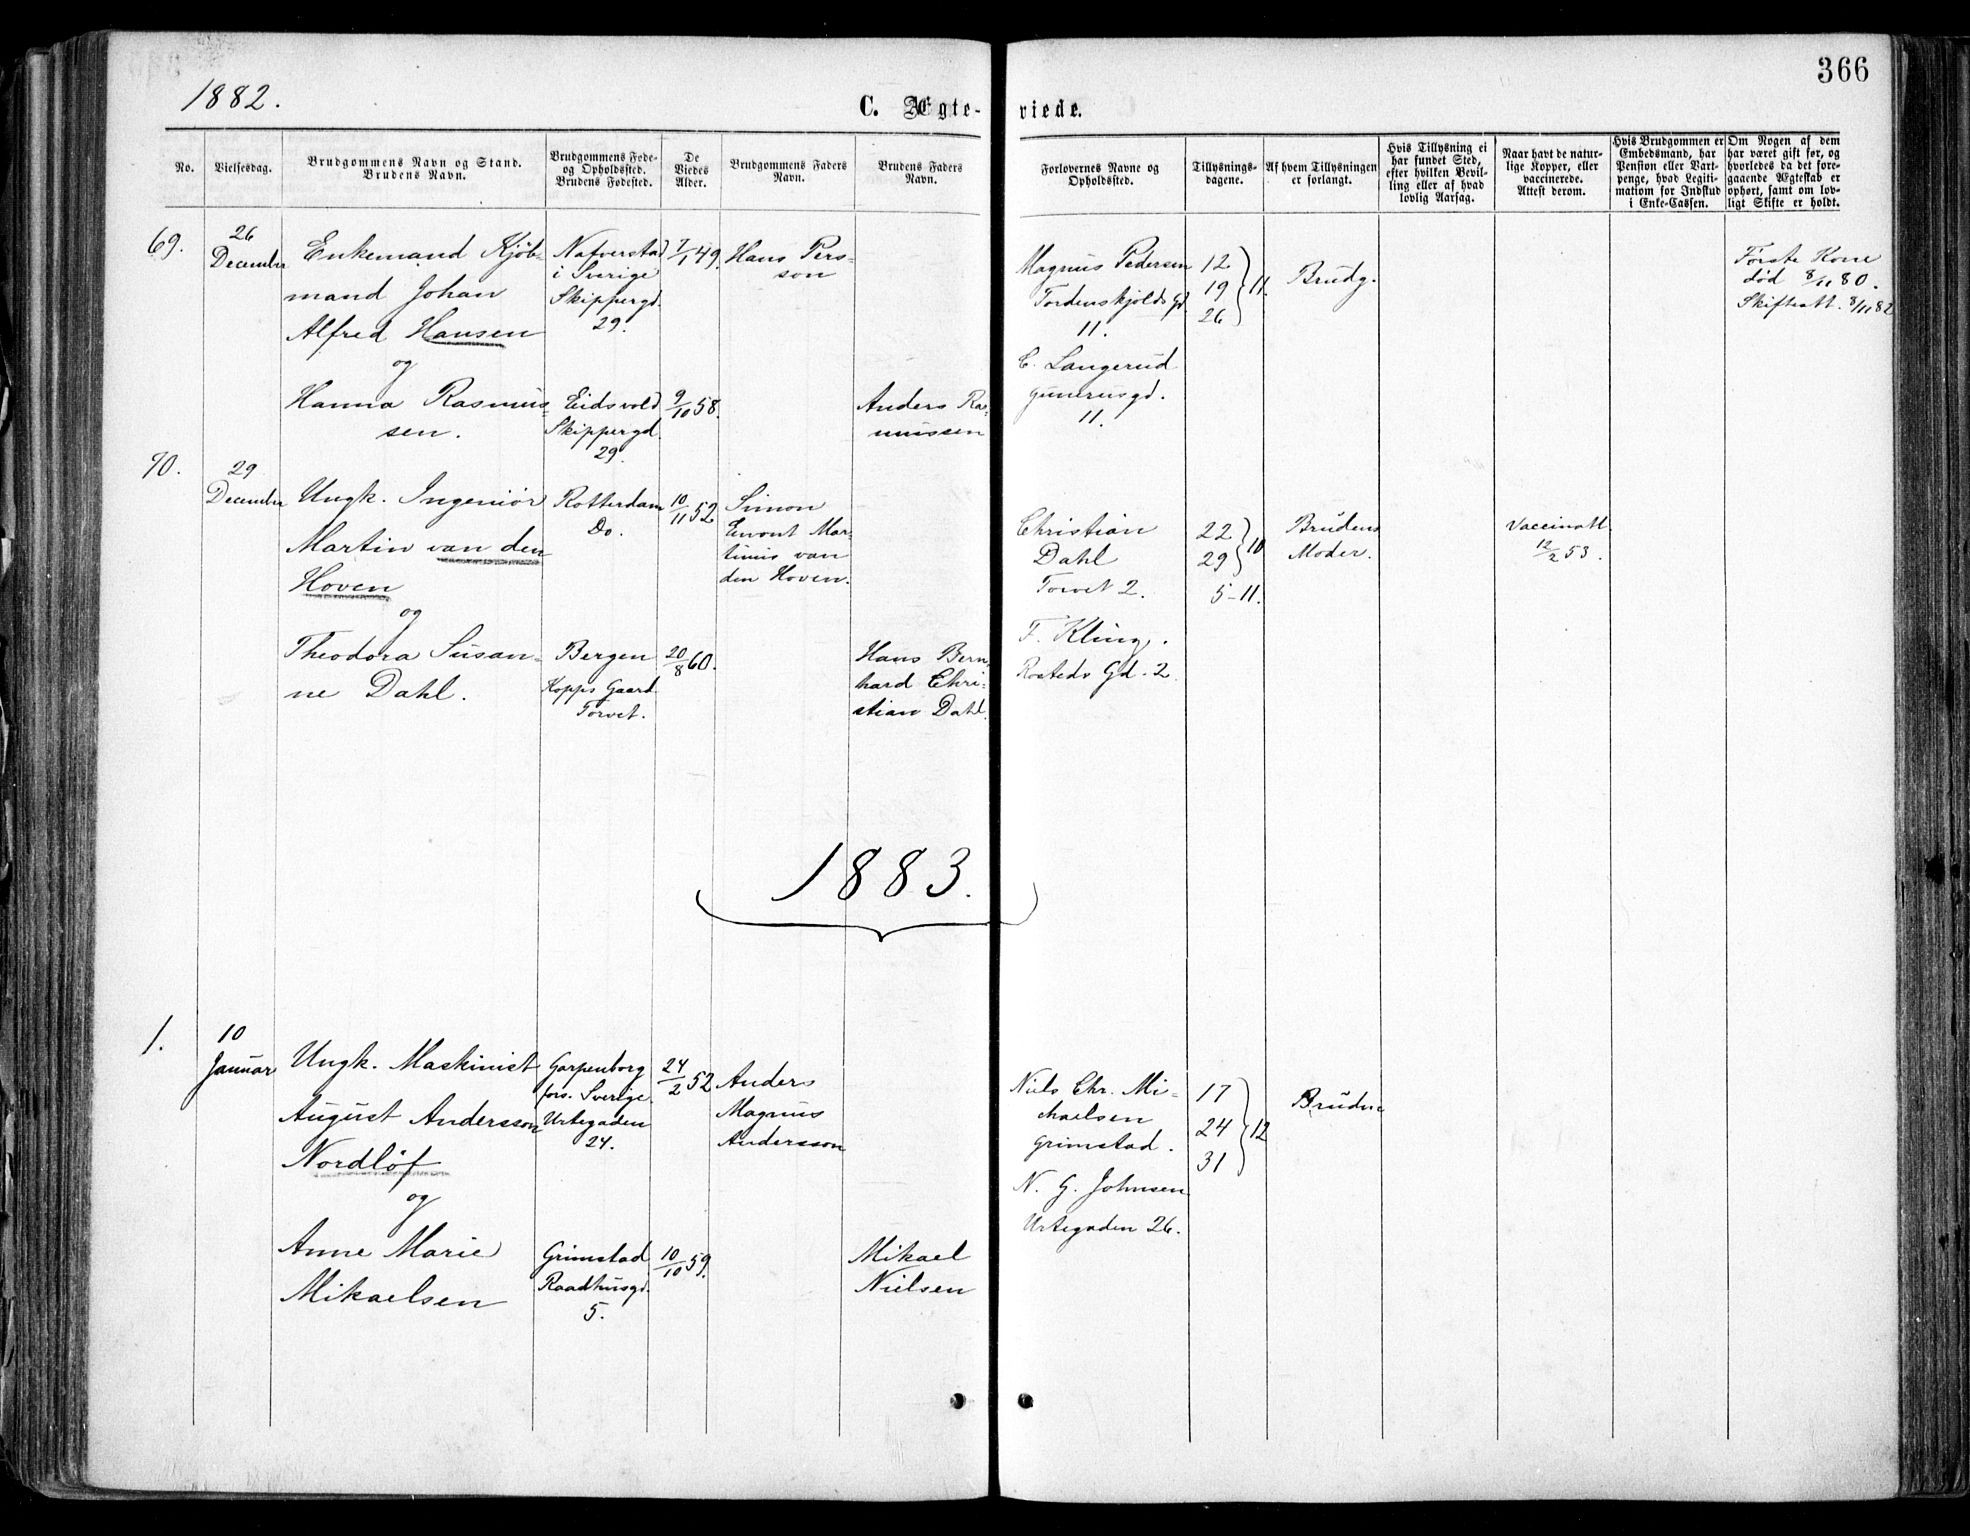 1882.
366
C. Ægte-
viede.
No.
Vielsesdag.
Brudgommens Navn og Stand.
Brudens Navn.
Brudgommens Føde-
og Opholdssted.
Brudens Fødested.
De
Viedes
Alder.
Brudgommens Faders
Navn.
Brudens Faders
Navn.
Forlovernes Navne og
Opholdssted.
Tillysnings-
dagene.
Af hvem Tillysningen
er forlangt.
Hvis Tillysning ei
har fundet Sted,
efter hvilken Bevil-
ling eller af hvad
lovlig Aarsag.
Naar havt de natur-
lige Kopper, eller
vaccinerede.
Attest derom.
Hvis Brudgommen er
Embedsmand, har
Pension eller Vart-
penge, hvad Legiti-
mation for Indskud
i Enke-Cassen.
Om Nogen af dem
har været gift før, og
hvorledes da det fore-
gaaende Ægteskab er
ophørt, samt om lov-
ligt Skifte er holdt.
69.
26
December
Enkemand Kjøb-
mand Johan
Alfred Hansen
og
Hanna Rasmus-
sen.
Nafverstad
i Sverige
Skippergd.
29.
Eidsvold
Skippergd.
29.
7/1 49.
9/10 58.
Hans Pers-
son
Anders Ras-
mussen
Magnus Pedersen
Tordenskjolds Gd.
11.
C. Langerud
11.
12
19
26
11.
Brudg.
Første Kone
død 8/11 80.
Skifteatt. 8/11 82
70.
29
December
Ungk. Ingeniør
Martin van den
Hoven
og
Theodora Susan-
ne Dahl.
Rotterdam
Do.
Bergen
Kopps Gaard
Torvet.
10/11 52
20/8 60.
Simon
Mar-
tinus van
den Hoven.
Hans Bern-
hard Chri-
stian Dahl.
Christian
Dahl
Torvet 2.
F. Kling.
Rosteds Gd. 2
22
29
10
5-11.
Brudens
Moder.
Vaccinatt.
12/2 53.
1883.
1.
10
Januar
Ungk. Maskinist
August Andersson
Nordlöf
og
Anne Marie
Mikaelsen
Garpenborg
fors. Sverige.
Urtegaden
24.
Grimstad
Raadhusgd.
5.
24/2 52
10/10 59.
Anders
Magnus
Andersson
Mikael
Nielsen
Niels Chr. Mi-
chaelsen
Grimstad.
N. G. Johnsen
Urtegaden 26.
17
24
31
12